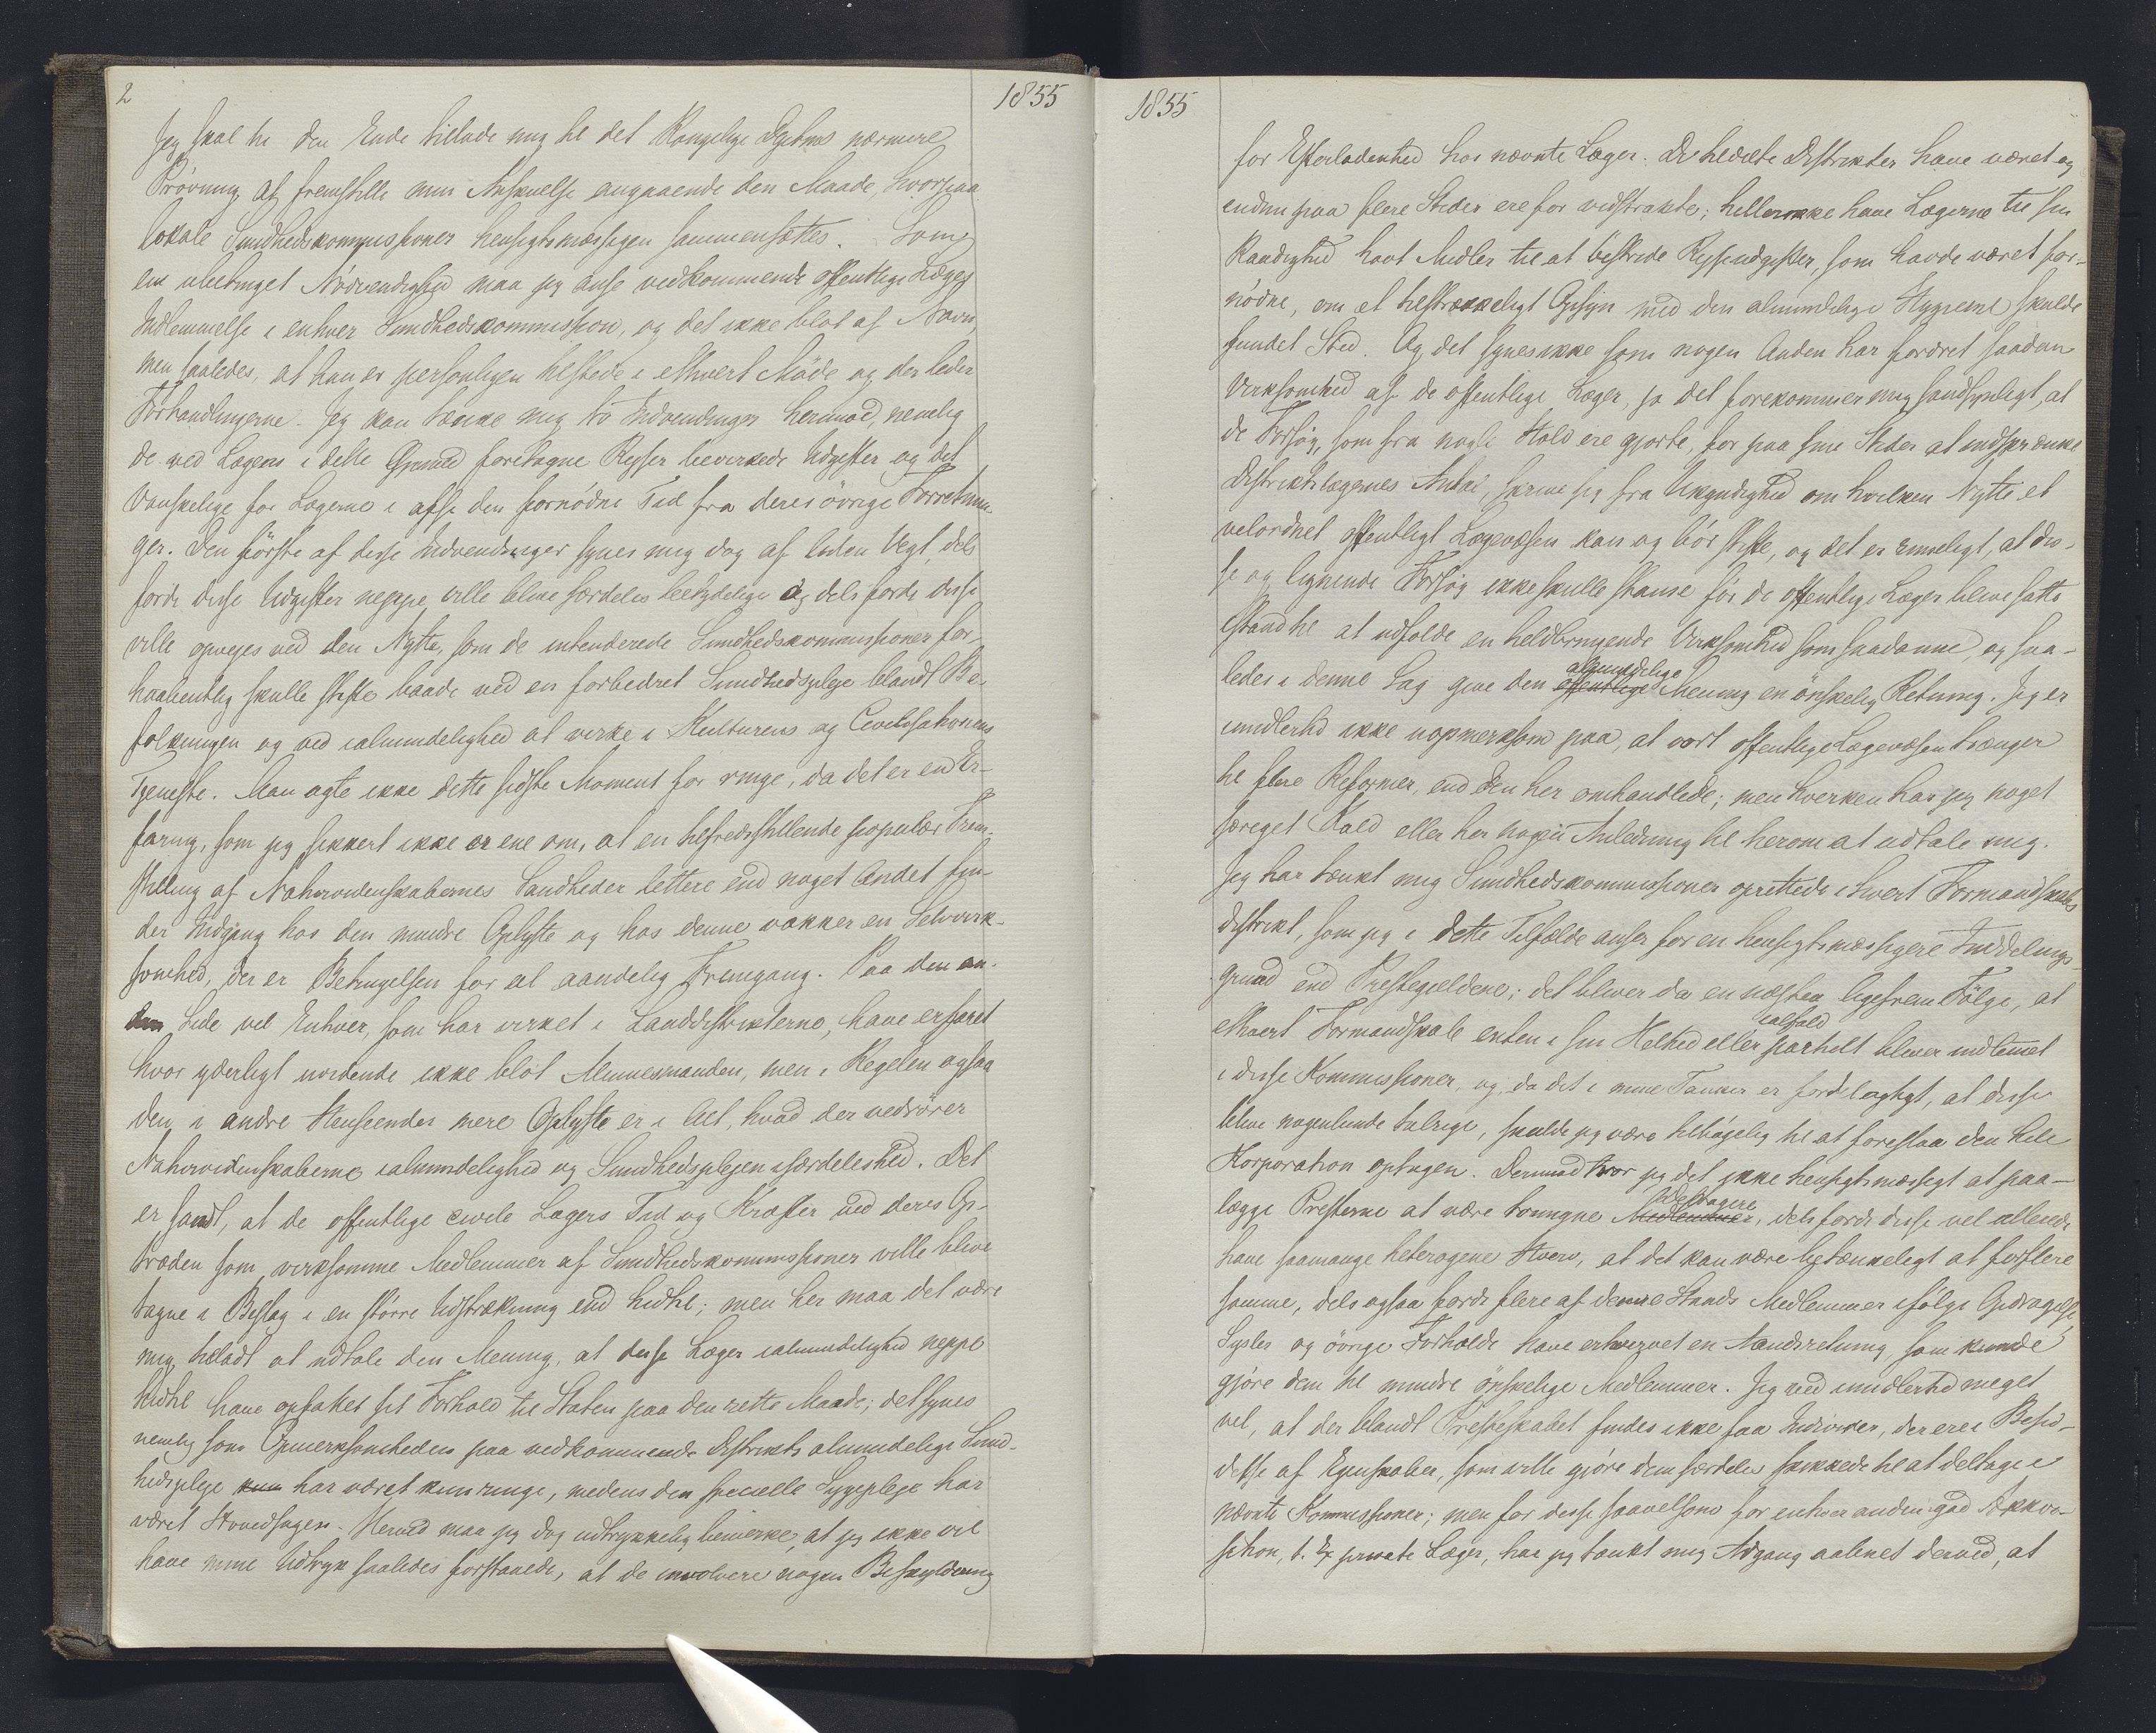 2
1855
Jeg skal til den Ende tillade mig til det Kongelige Dptms nærmere
Prøvning at fremstille min Anskuelse angaaende den Maade, hvorpaa
lokale Sundhedskommissioner hensigtsmæssigen sammensættes. Som
en ubetinget Nödvendighed maa jeg anse vedkommende offentlige Læges
Indlemmelse i enhver Sundhedskommission, og det ikke blot af Navn,
men saaledes, at han er personligen tilstede i ethvert Möde og der leder
Forhandlingerne. Jeg kan tænke mig to Indvendinger herimod, nemlig
de ved Lægens i dette Øiemed foretagne Reiser bevirkede Udgifter og det
Vanskelige for Lægerne i afse den fornödne Tid fra deres övrige Forretnin-
ger. Den förste af disse Indvendinger synes mig dog af liden Vegt, dels
fordi disse Udgifter neppe ville blive særdeles betydelige og dels fordi disse
ville opveies ved den Nytte, som de intenderede Sundhedskommissioner for-
haabentlig skulle stifte baade ved en forbedret Sundhedspleje blandt Be-
folkningen og ved ialmindelighed at virke i Kulturens og Civilisationens
Tjeneste. Man agte ikke dette sidste Moment for ringe, da det er en Er-
faring, som jeg sikkert ikke er ene om, at en tilfredsstillende populær Frem-
stilling af Naturvidenskabernes Sandheder lettere end noget Andet fin-
der Indgang hos den mindre Oplyste og hos denne vækker en Selvvirk-
somhed, der er Betingelsen for al aandelig Fremgang. Paa den an-
den Side vil Enhver, som har virket i Landdistrikterne, have erfaret
hvor yderligt uvidende ikke blot Almuesmanden, men i Regelen ogsaa
den i andre Henseender mere Oplyste er i Alt, hvad der vedrörer
Naturvidenskaberne ialmindelighed og Sundhedsplejen isærdeleshed. Det
er sandt, at de offentlige civile Lægers Tid og Kræfter ved deres Op-
træden som virksomme Medlemmer af Sundhedskommissioner ville blive
tagne i Beslag i en större Udstrækning end hidtil; men her maa det være
mig tilladt at udtale den Mening, at disse Læger ialmindelighed neppe
hidtil have opfattet sit Forhold til Staten paa den rette Maade; det synes
nemlig som Opmerksomheden paa vedkommende Distrikts almindelige Sund-
hedspleje kun har været kun ringe, medens den specielle Sygepleje har
været Hovedsagen. Herved maa jeg dog udtrykkelig bemerke, at jeg ikke vil
have mine Udtryk saaledes forstaaede, at de involvere nogen Beskyldning
1855
for Efterladenhed hos nævnte Læger. De tildelte Distrikter have været og
endnu paa flere Steder ere for vidstrakte; heller ikke have Lægerne til sin
Raadighed havt Midler til at bestride Rejseudgifter, som havde været for-
nödne, om et tilstrækkeligt Opsyn med den almindelige Hygieine skulde
fundet Sted. Og det synes ikke som nogen Anden har fordret saadan
Virksomhed af de offentlige Læger, ja det forekommer mig sandsynligt, at
de Forsøg, som fra nogle Hold ere gjorte, for paa sine Steder at indskrænke
Distriktslægernes Antal, skrive sig fra Ukyndighed om hvilken Nytte et
velordnet offentligt Lægevæsen kan og bör stifte, og det er rimeligt, at dis-
se og lignende Forsøg ikke skulle standse för de offentlige Læger blive satte
istand til at udfolde en heldbringende Virksomhed som saadanne, og saa-
ledes i denne Sag give den offentlige almindelige Mening en önskelig Retning. Jeg er
imidlertid ikke uopmerksom paa, at vort offentlige Lægevæsen trænger
til flere Reformer, end den her omhandlede; men hverken har jeg noget
særeget Kald eller her nogen Anledning til herom at udtale mig.
Jeg har tænkt mig Sundhedskommissioner oprettede i hvert Formandskabs
distrikt, som jeg i dette Tilfælde anser for en hensigtsmæssigere Inddelings-
grund end Præstegjeldene; det bliver da en næsten ligefrem Fölge, at
ethvert Formandskab enten i sin Helhed eller ialfald partielt bliver indlemmet
i disse Kommissioner, og, da det i mine Tanker er fordelagtigt, at disse
blive nogenlunde talrige, skulde jeg være tilbøjelig til at foreslaa den hele
Korporation optagen. Derimod tror jeg det ikke hensigtsmæssigt at paa-
lægge Presterne at være tvungne Medlemmer Deltagere, dels fordi disse vel allerede
have saamange heterogene Hverv, at det kan være betænkeligt at forflere
samme, dels ogsaa fordi flere af denne Stands Medlemmer ifölge Opdragelse,
Sysler og övrige Forholde have erhvervet en Aandsretning, som kunde
gjöre dem til mindre önskelige Medlemmer. Jeg ved imidlertid meget
vel, at der blandt Presteskabet findes ikke faa Individer, der ere i Besid-
delse af Egenskaber, som ville gjöre dem særdeles skikkede til at deltage i
nævnte Kommissioner; men for disse saavelsom for enhver anden god Akkvi-
sition, t. Ex private Læger, har jeg tænkt mig Adgang aabnet derved, at